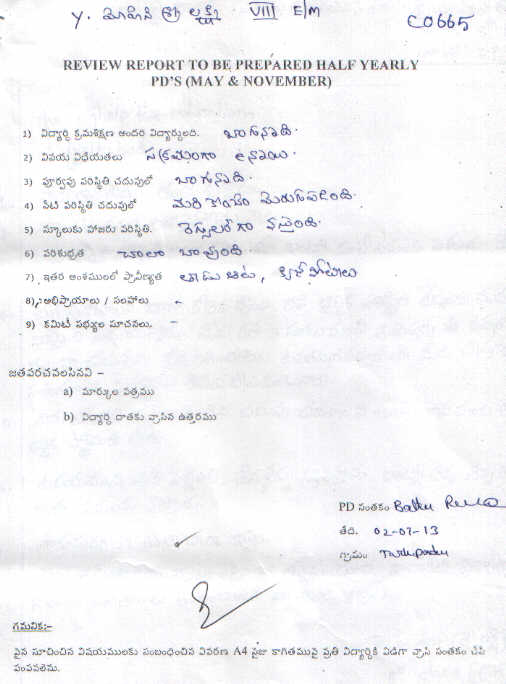 Y. మోహన శ్రీ లక్ష్మి VIII E/M C0665
REVIEW REPORT TO BE PREPARED HALF YEARLY
PD'S (MAY & NOVEMBER)
1) విద్యార్థి క్రమశిక్షణ అందరి విద్యార్థులది. బాగున్నాది.
2) వినయ విధేయతలు సక్రమంగా ఉన్నాయి.
3) పూర్వపు పరిస్థితి చదువులో బాగున్నాది.
4) నేటి పరిస్థితి చదువులో మరి కొంచెం మెరుగుపడింది.
5) స్కూలుకు హాజరు పరిస్థితి. రెగ్యులర్‌గా వస్తుంది.
6) పరిశుభ్రత చాలా బాగుంది
7) ఇతర అంశములలో ప్రావీణ్యత ఆటపాటలు, క్విజ్ పోటీలు
8) అభిప్రాయాలు / సలహాలు -
9) కమిటీ సభ్యుల సూచనలు. -
జతపరచవలసినవి –
a) మార్కుల పత్రము
b) విద్యార్థి దాతకు వ్రాసిన ఉత్తరము
PD సంతకం
తేది. 02-07-13
గ్రామం
గమనిక:-
పైన సూచించిన విషయములకు సంబంధించిన వివరణ A4 సైజు కాగితముపై ప్రతి విద్యార్థికి విడిగా వ్రాసి సంతకం చేసి
పంపవలెను.